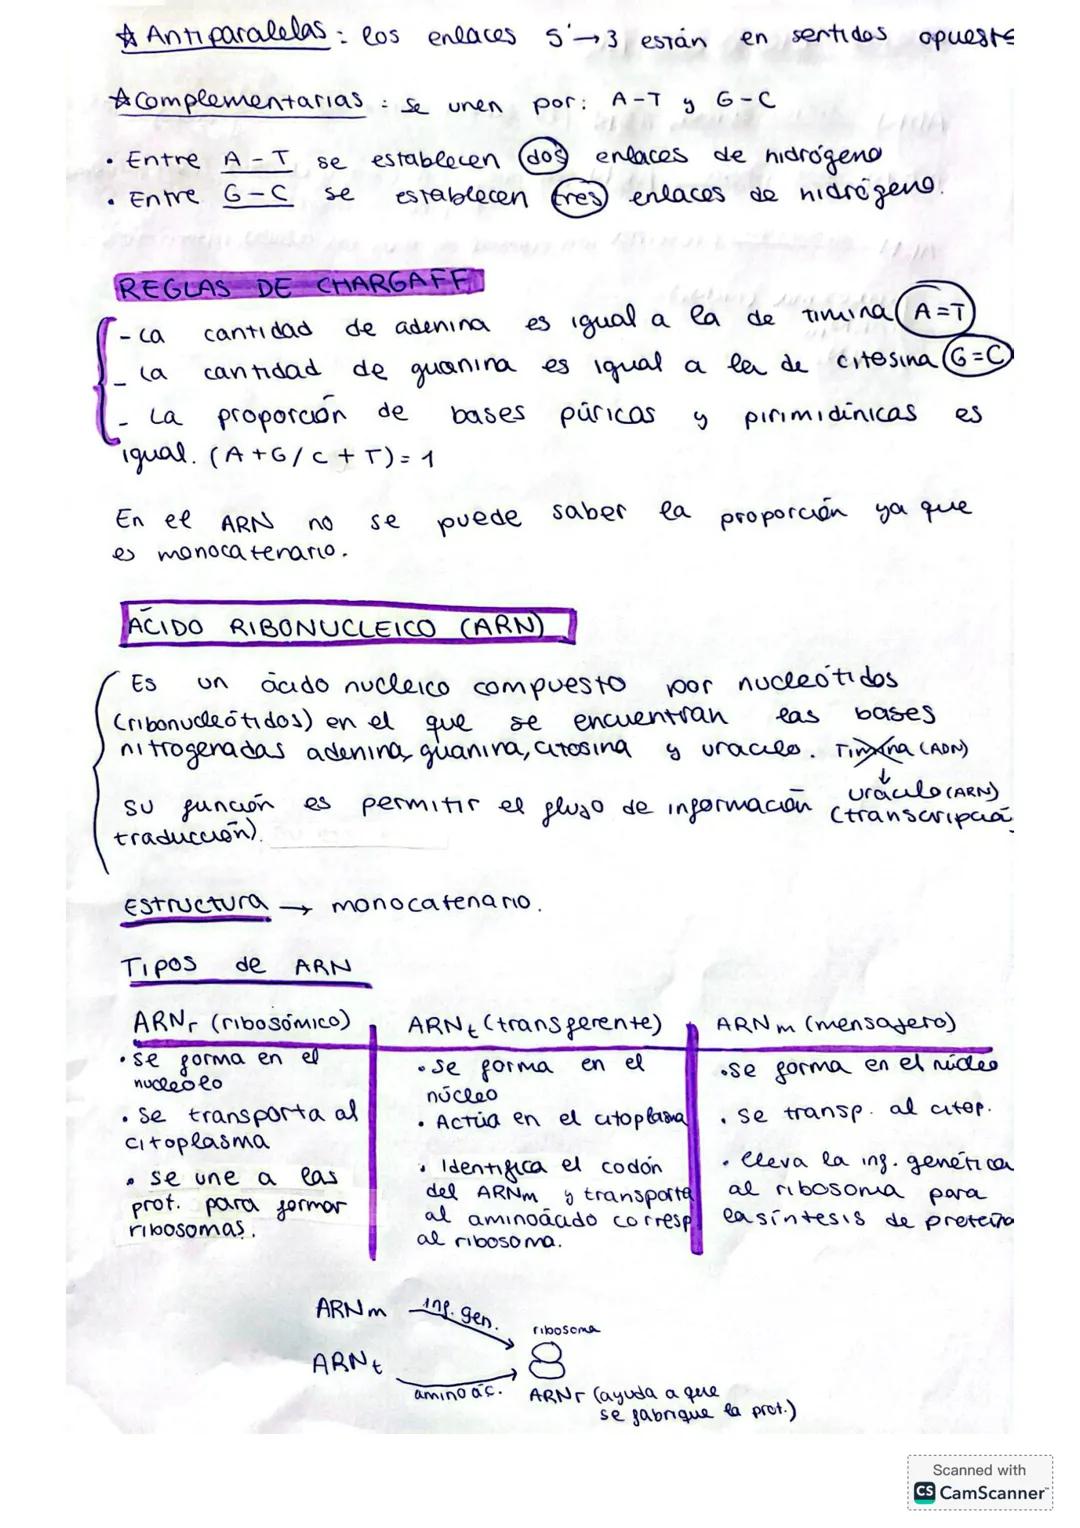 ☆ Antiparalelas: los enlaces 5'→3 están en sentidos opuest
☆ Complementarias: se unen por: A-T y G-C
• Entre A-T se establecen dos enlaces de hidrógeno
• Entre G-C se establecen tres enlaces de hidrógeno.
REGLAS DE CHARGAFF
- La cantidad de adenina es igual a la de timina (A=T)
- La cantidad de guanina es igual a la de citosina (G=C)
- La proporción de bases púricas y pirimidínicas es
igual. (A+G/C+T)=1
En el ARN no se puede saber la proporción ya que
es monocatenario.
ÁCIDO RIBONUCLEICO (ARN)
Es un ácido nucleico compuesto por nucleótidos
(ribonucleótidos) en el que se encuentran las bases
nitrogenadas adenina, guanina, citosina y uracilo. Timina (ADN)
↓
uracilo (ARN)
Su función es permitir el flujo de información (transcripció
traducción).
Estructura → monocatenario.
Tipos de ARN
ARNr (ribosómico)
• se forma en el
nucleolo
• Se transporta al
citoplasma
• se une a las
prot. para formar
ribosomas.
ARNt (transferente)
• Se forma en el
núcleo
• Actúa en el citoplasma
• Identifica el codón
del ARNm y transporta
al aminoácido corresp
al ribosoma.
ARNm (mensajero)
• Se forma en el núcleo
• Se transp. al citop.
• lleva la inf. genética
al ribosoma para
la síntesis de proteína
ARNm inf. gen.
ribosoma
ARNt
aminoác.
ARNr (ayuda a que
se fabrique la prot.)
Scanned with
CS CamScanner